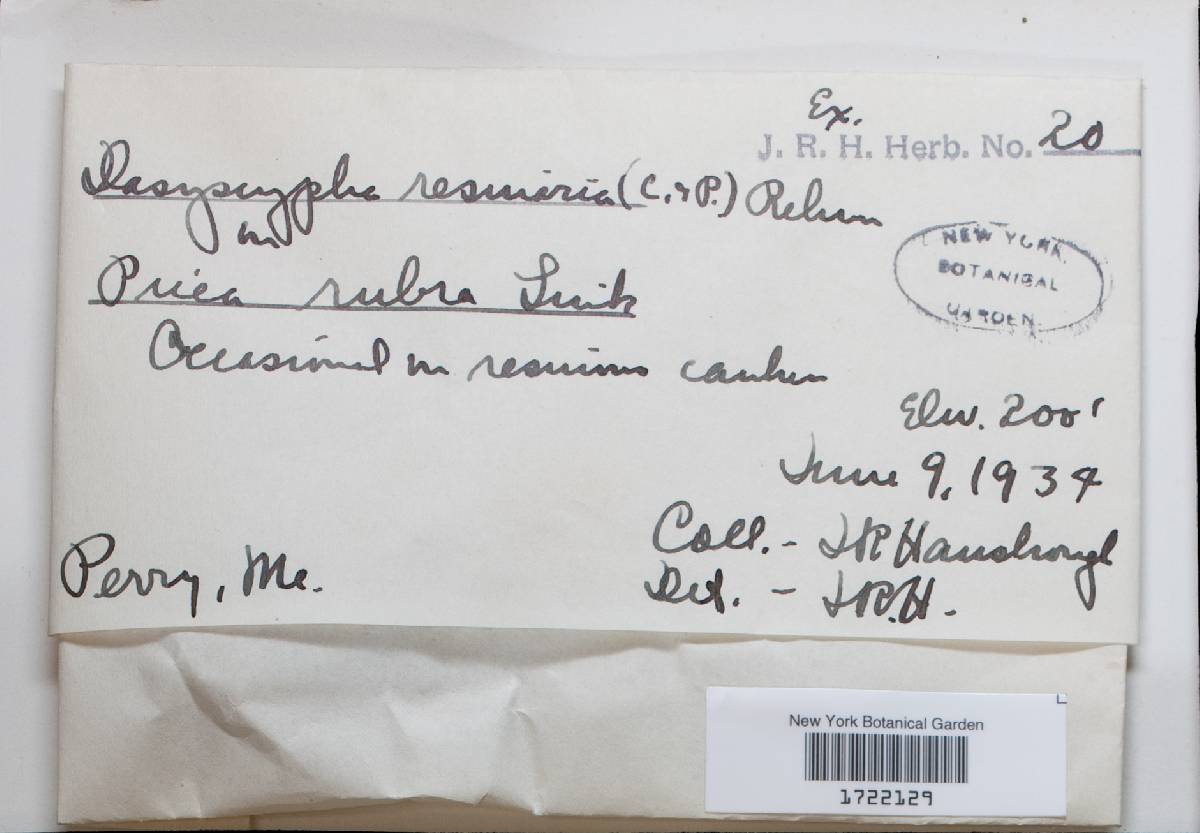 Ex.
J. R. H. Herb. No. 20
Dasyscypha resinaria (C. & P.) Rehm
on
Picea rubra Link
NEW YORK
BOTANICAL
GARDEN
Occasional on resinous canker
Elev. 200'
June 9, 1934
Coll. - JR Hansbrough
Perry, Me.
Det. - JR.H.
New York Botanical Garden
1722129